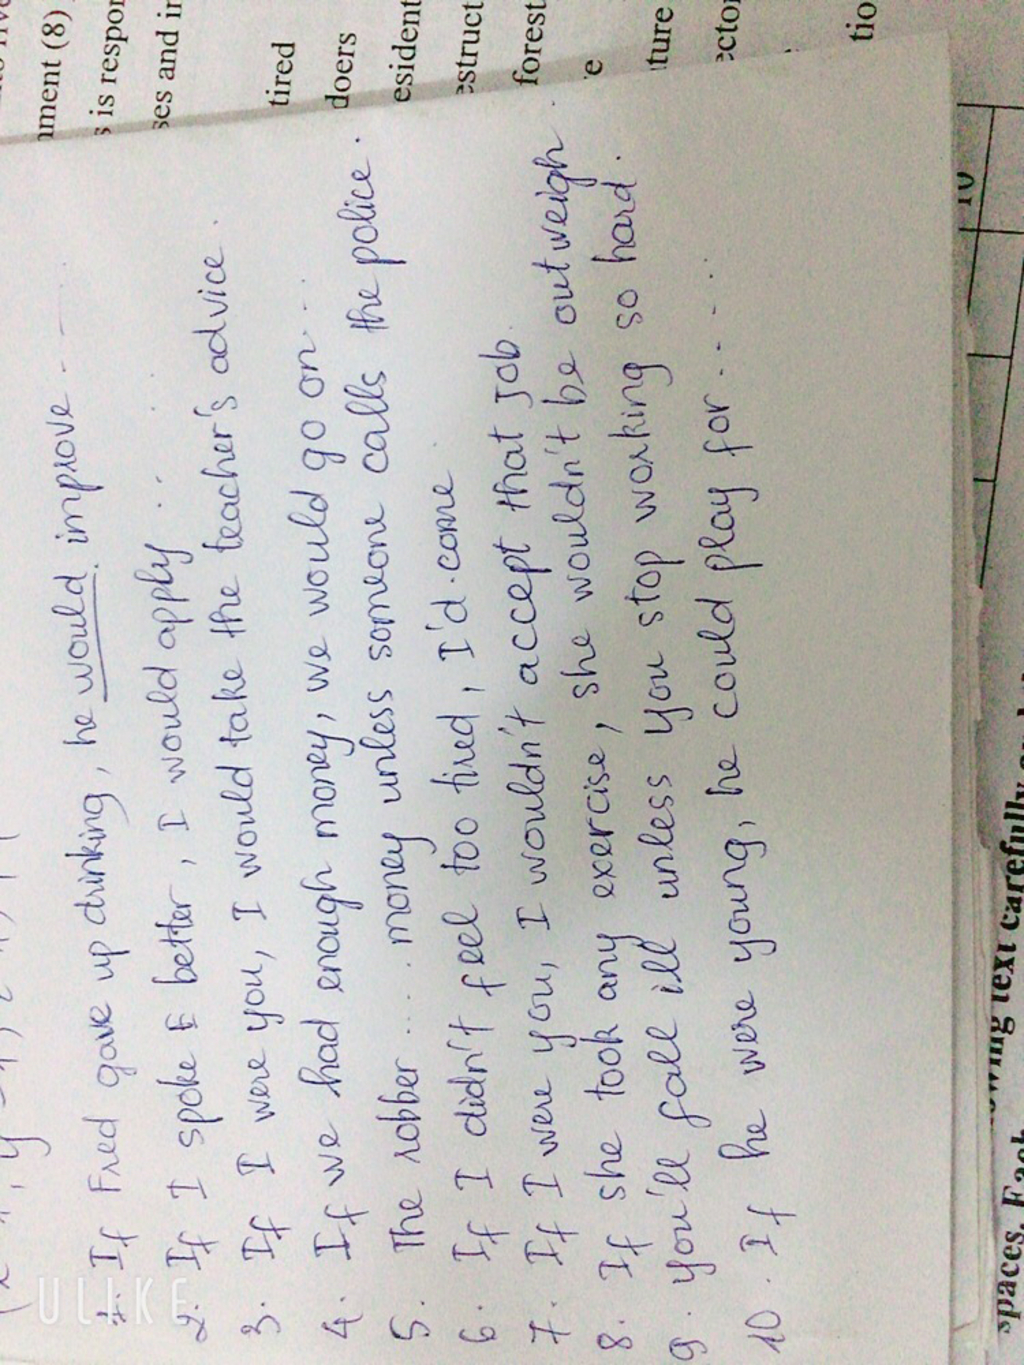 nment (8)
is respon
ses and in
tired
doers
esident
estruct
forest
e
ture
ector
tio
1. If Fred gave up drinking, he would improve ...
2. If I spoke better, I would apply ...
3. If I were you, I would take the teacher's advice.
4. If we had enough money, we would go on ...
5. The robber .... money unless someone calls the police.
6. If I didn't feel too tired, I'd come
7. If I were you, I wouldn't accept that job.
8. If she took any exercise, she wouldn't be outweigh.
9. you'll fall ill unless you stop working so hard.
10. If he were young, he could play for ....
10
owing text carefully
spaces. Each
ULIKE